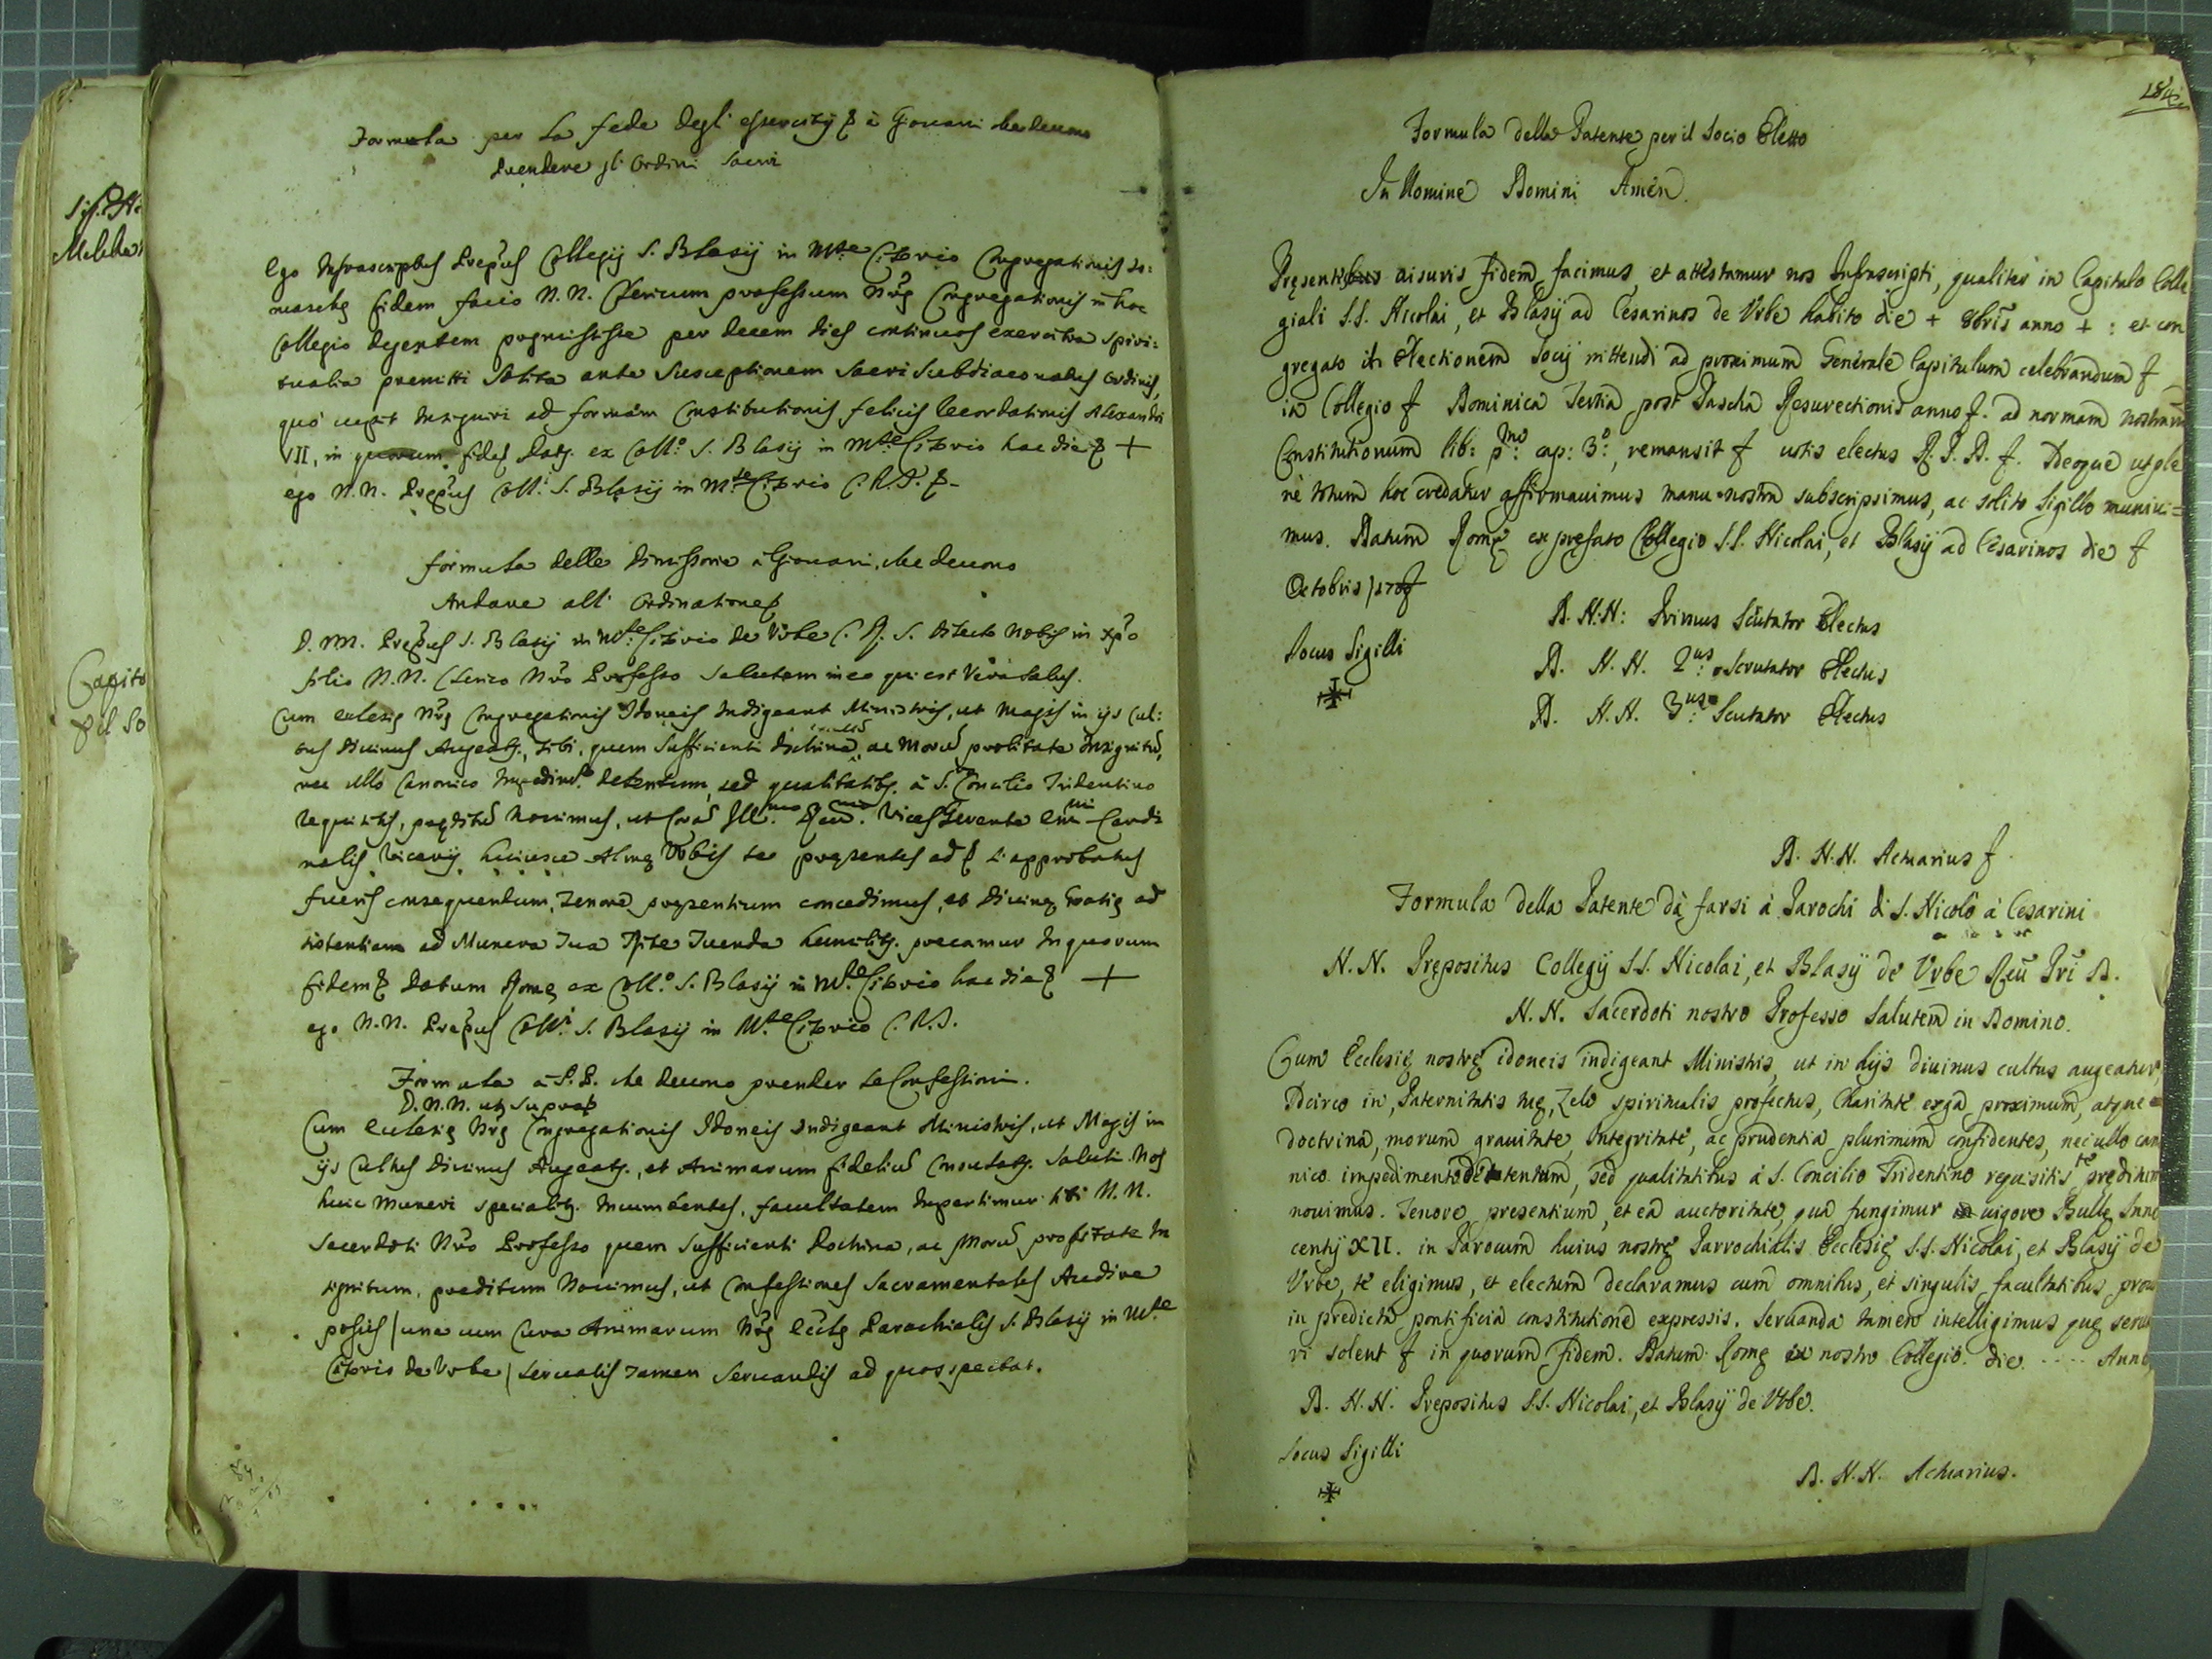 Sig.r
Capito
p il So
Formula per la fede degl' essercitij p a Giovani che devono
Prendere gl' Ordini Sacri
Ego Infrascriptus Prep.us Collegij S. Blasij in M.te Citorio Congregationis So:
maschę fidem facio N. N. Clericum professum Nrę Congregationis in hoc
Collegio degentem peregisse per decem dies continuos exercitia spiri:
tualia premitti solita ante susceptionem sacri subdiaconatus ordinis,
quo cupit insigniri ad formam Constitutionis felicis Recordationis Alexandri
VII, in quorum fidem Dat. ex Coll.o S. Blasij in M.te Citorio hac die p +
ego N. N. Prep.us Coll.i S. Blasij in M.te Citorio C. R. S. p
formula delle dimissorie a Giovani, che devono
Andare all' Ordinatione p
D. NN. Prep.us S. Blasij in M.te Citorio de Urbe C. R. S. Dilecto Nobis in Xpo
filio N. N. Clerico Nro Professo Salutem in eo qui est Vera Salus.
Cum eclesię Nrę Congregationis Idoneis Indigeant Ministris, ut magis in ijs Cul:
tus divinus Augeatur, tibi, quem sufficienti doctrina, ac Morũ probitate Insignitũ,
nec ullo Canonico Impedim.to detentum, sed qualitatibus a S. Concilio Tridentino
requisitis, pręditũ Novimus, ut Corã Ill.mo Reu.mo Vices Gerente Em.mi Cardi
nalis Vicarij huiusce Almę Urbis te pręsentes ad p si approbatus
fueris consequendum, Tenore pręsentium concedimus, et divinę Gratię ad
sistentiam ad Munera tua Rite tuenda humiliter precamur In quorum
fidem p Datum Romę ex Coll.o S. Blasij in M.te Citorio hac die p +
ego N. N. Prep.us Coll.i S. Blasij in M.te Citorio C. R. S.
Formula a P. P. che devono prender le Confessioni.
D. N. N. ut supra p
Cum eclesię Nrę Congregationis Idoneis indigeant Ministris, ut Magis in
ijs Cultus divinus Augeatur, et Animarum fideliũ Consulatur Saluti. Nos
huic muneri specialiter Incumbentes, facultatem Impertimur tibi N. N.
Sacerdoti Nro Professo quem sufficienti Doctrina, ac Morũ probitate In
signitum, preditum Novimus, ut Confessiones Sacramentales Audire
possis / una cum Cura Animarum Nrę Parochialis S. Blasij in M.te
Citorio de Urbe / servatis tamen servandis ad quos spectat.
184
Formula della Patente per il Socio Eletto
In Nomine Domini Amen.
Pręsentibus visuris fidem facimus, et attestamur nos Infrascripti, qualiter in Capitulo Colle
giali S.S. Nicolai, et Blasij ad Cesarinos de Urbe habito die + 8bris anno + : et con
gregato ob Electionem Socij mittendi ad proximum Generale Capitulum celebrandum f
in Collegio f Dominica Tertia post Pascha Resurectionis anno f. ad normam nostrarum
Constitutionum lib: p.mo: cap: 3.o:, remansit f votis electus R. P. D. f. Deoque ut ple
ne totum hoc credatur affirmavimus manu nostra subscripsimus, ac solito Sigillo munivi=
mus. Datum Romę ex prefato Collegio S.S. Nicolai, et Blasij ad Cesarinos die f
Octobris 170f
D. N. N: Primus Scutator Electus
Locus Sigilli
D. N. N. 2.us: Scrutator Electus
D. N. N. 3.us: Scutator Electus
D. N. N. Actuarius f.
Formula della Patente dà farsi à Parochi di S. Nicolò à Cesarini
N. N. Prępositus Collegij S.S. Nicolai, et Blasij de Urbe Reũ Pri D.
N. N. Sacerdoti nostro Professo Salutem in Domino.
Cum Ecclesię nostrę idoneis indigeant Ministris, ut in hijs divinus cultus augeatur,
Idcirco in Paternitatis tuę, Zelo spiritualis profectus, Charitate erga proximum, atque
doctrina, morum gravitate, Integritate, ac prudentia plurimum confidentes, nec ullo cano
nico impedimento detentum, sed qualitatibus á S. Concilio Tridentino requisitis te pręditum
novimus. Tenore presentium, et ea auctoritate, qua fungimur vigore Bullę Inno
centij XII. in Parocum huius nostrę Parrochialis Ecclesię S.S. Nicolai, et Blasij de
Urbe, te eligimus, et electum declaramus cum omnibus, et singulis facultatibus prout
in predicta pontificia constitutione expressis. Servanda tamen intelligimus quę serva
ri solent f in quorum fidem. Datum Romę ex nostro Collegio die .... Anno
D. N. N. Prepositus S.S. Nicolai, et Blasij de Urbe.
Locus Sigilli
D. N. N. Actuarius.